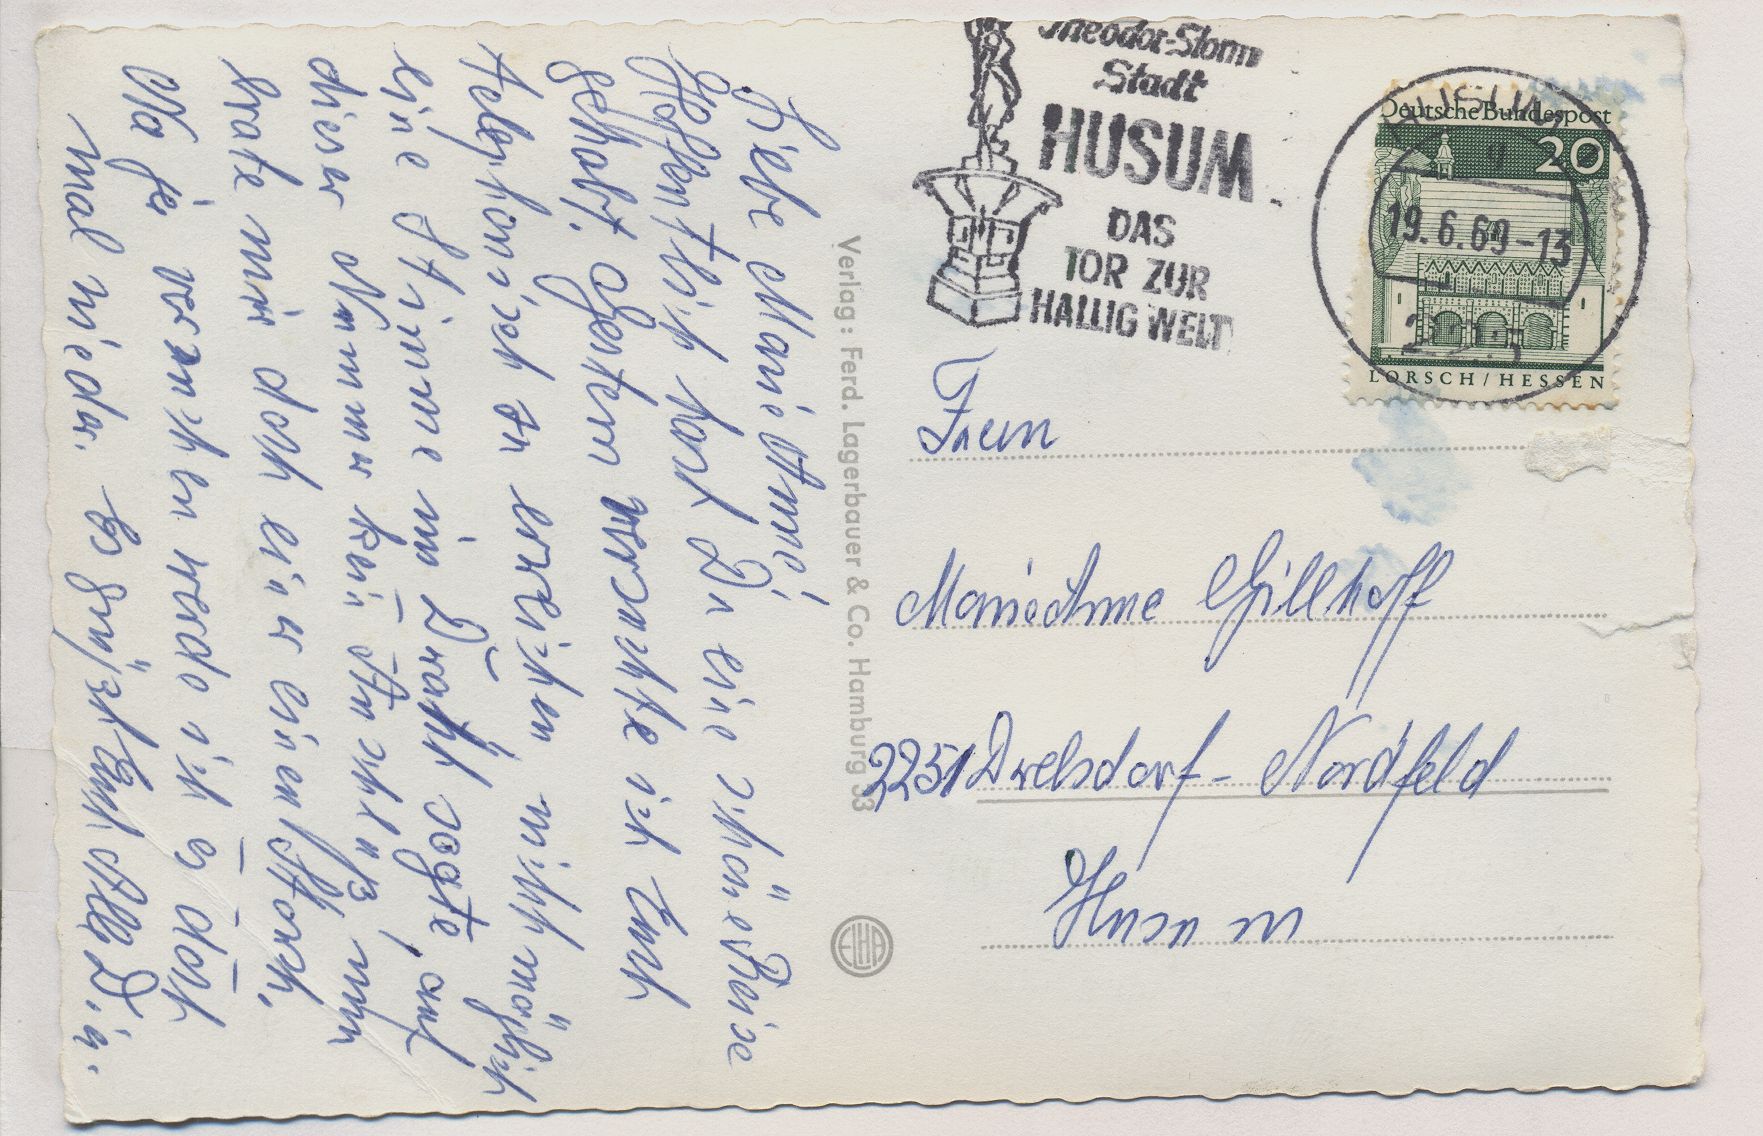 Liebe MarieAnne!
Hoffentlich hast Du eine schöne Reise
gehabt. Gestern versuchte ich Euch
telephonisch zu erreichen, nicht möglich
eine Stimme im Draht sagte, auf
dieser Nummer kein Anschluß nun
brate mir doch einer einen Storch,
Na ja versuchen werde ich es doch
mal wieder. Es grüßt Euch alle
Theodor-Storm
Stadt
HUSUM
DAS
TOR ZUR
HALLIG WELT
HUSUM
19.6.69-13
Deutsche Bundespost
20
LORSCH/HESSEN
Verlag: Ferd. Lagerbauer & Co. Hamburg 33
ELHA
Frau
MarieAnne Gillhoff
2251 Drelsdorf - Nordfeld
Husum